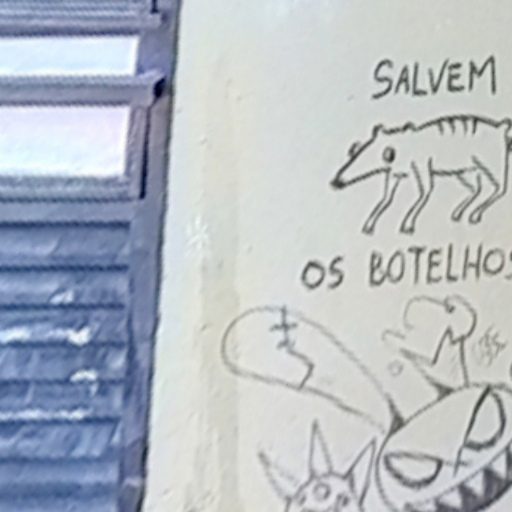 SALVEM
OS BOTELHOS